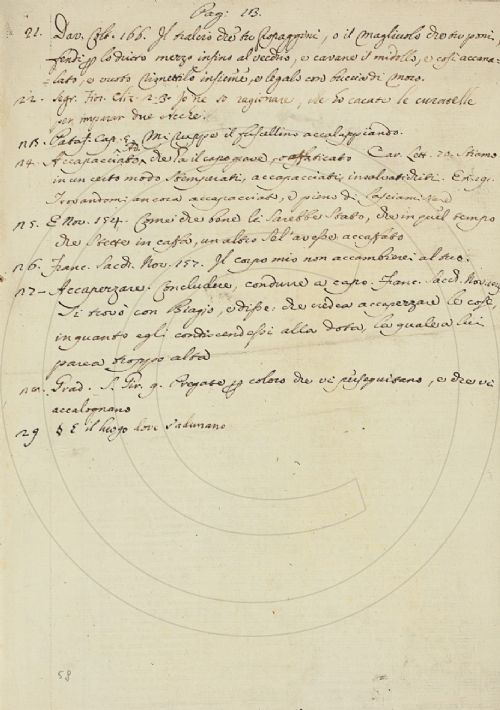 Pag: 13.
21. Dav. Colt. 166. Il tralcio che tu propaggini, o il magliuolo che tu poni,
fendi lo dietro mezzo insino al vecchio, e cavane il midollo, e così accana-
lato, e vuoto rimettilo insieme, e legalo con buccia di moro.
22. Segr. Fior. Cliz. 2. 3. Io che so ragionare, che ho cacate le curatelle
per imparar due Acche.
n23. Pataf. Cap. Mi ruppe il fusellino accaluppiando.
24. Accapacciato, che ha il capo grave, o affaticato Car. Lett. 70. Stiamo
in un certo modo stemperati, accapacciati, Et. 19.
Trovandomi ancora accapacciato, e pieno di
n25. E Nov. 154. Come che bene le sarebbe stato, che in quel tempo
che stette in cassa, un altro se l'avesse accassato
n26. Franc. Sacch. Nov. 157. Il corpo mio non accambierei al tuo.
n27 - Accapezzare. Concludere, condurre a capo. Franc. Sacch. Nov.
Si trovò con Biagio, e disse: che vedea accapezzare le cose,
in quanto egli condiscendessi alla dota, la quale a lui
parea troppo alta
n28. Grad. S. Gir. 9. Pregate coloro che vi perseguitano, e che vi
accalognano
29 § E il luogo dove s'adunano
58